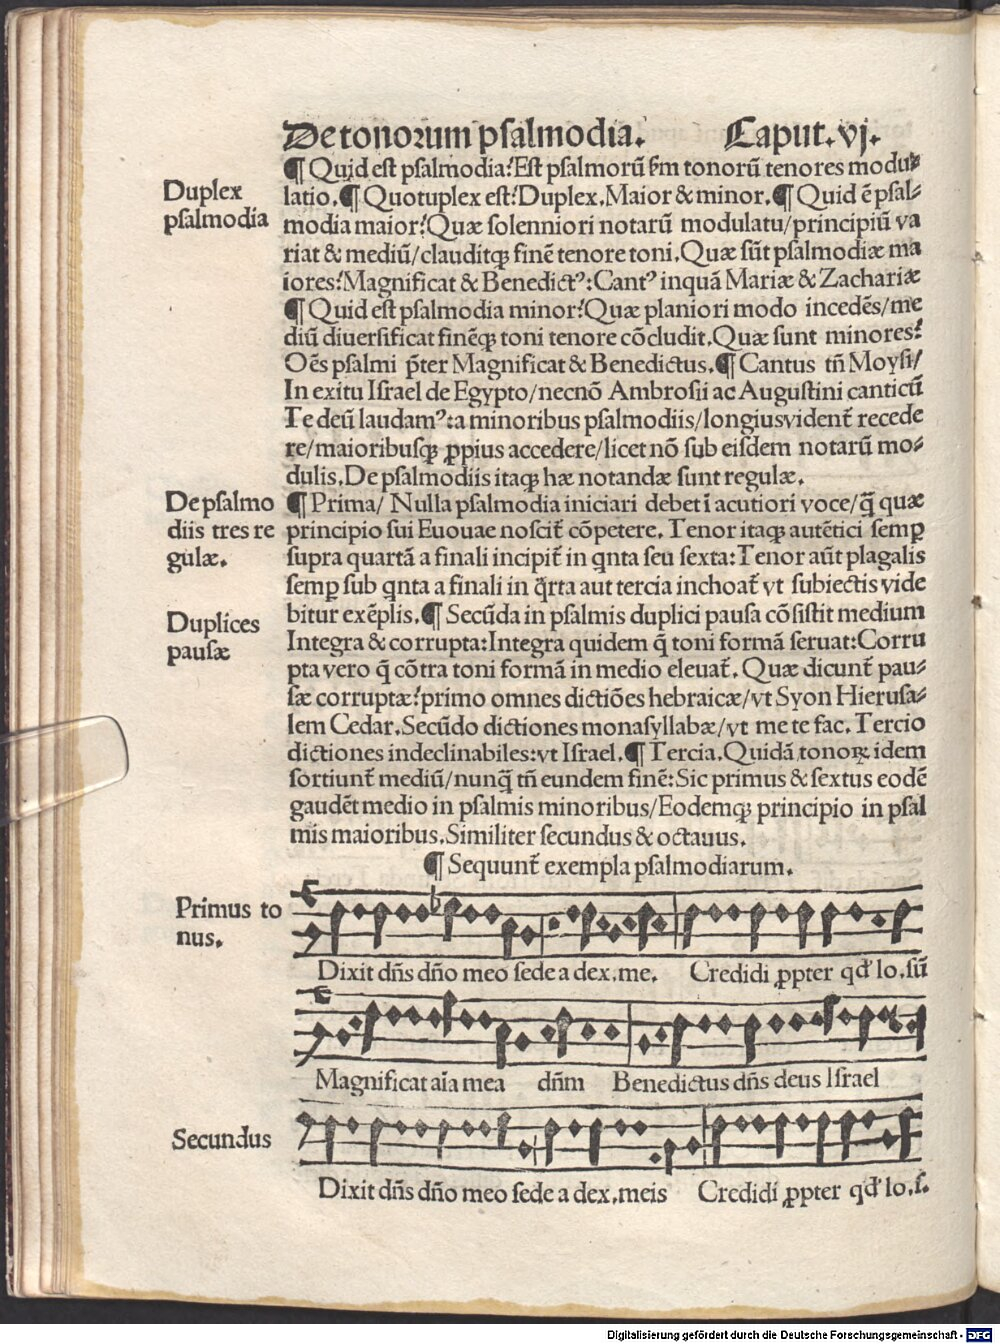 De tonorum psalmodia. Caput. vj.
¶ Quid est psalmodia? Est psalmorũ ẜm tonorũ tenores modu⸗
Duplex
psalmodia
latio. ¶ Quotuplex est? Duplex. Maior & minor. ¶ Quid ẽ psal⸗
modia maior? Quæ solenniori notarũ modulatu/principiũ va
riat & mediũ/clauditqꝫ finẽ tenore toni. Quæ sũt psalmodiæ ma
iores? Magnificat & Benedictꝰ: Cantꝰ inquã Mariæ & Zachariæ
¶ Quid est psalmodia minor? Quæ planiori modo incedẽs/me
diũ diuersificat finẽqꝫ toni tenore cõcludit. Quæ sunt minores?
Oẽs psalmi p̃ter Magnificat & Benedictus. ¶ Cantus tñ Moysi/
In exitu Israel de Egypto/necnõ Ambrosii ac Augustini canticũ
Te deũ laudamꝰ: a minoribus psalmodiis/longiusvident̃ recede
re/maioribusqꝫ ꝓpius accedere/licet nõ sub eisdem notarũ mo⸗
dulis. De psalmodiis itaqꝫ hæ notandæ sunt regulæ.
De psalmo
diis tres re
gulæ.
¶ Prima/ Nulla psalmodia iniciari debet ĩ acutiori voce/q̃ quæ
principio sui Euouae noscit̃ cõpetere. Tenor itaqꝫ autẽtici semꝑ
supra quartã a finali incipit̃ in qnta seu sexta: Tenor aũt plagalis
semꝑ sub qnta a finali in qrta aut tercia inchoat̃ vt subiectis vide
Duplices
pausæ
bitur exẽplis. ¶ Secũda in psalmis duplici pausa cõsistit medium
Integra & corrupta: Integra quidem q̃ toni formã seruat: Corru
pta vero q̃ cõtra toni formã in medio eleuat̃. Quæ dicunt̃ pau⸗
sæ corruptæ? primo omnes dictiões hebraicæ/vt Syon Hierusa⸗
lem Cedar. Secũdo dictiones monasyllabæ/vt me te fac. Tercio
dictiones indeclinabiles: vt Israel. ¶ Tercia. Quidã tonoꝝ idem
sortiunt̃ mediũ/nunq̃ tñ eundem finẽ: Sic primus & sextus eodẽ
gaudẽt medio in psalmis minoribus/Eodemqꝫ principio in psal
mis maioribus. Similiter secundus & octauus.
¶ Sequunt̃ exempla psalmodiarum.
Primus to
nus.
Dixit dñs dño meo sede a dex. me. Credidi ꝓpter qd̃ lo. sũ
Magnificat aĩa mea dñm Benedictus dñs deus Israel
Secundus
Dixit dñs dño meo sede a dex. meis Credidi ꝓpter qd̃ lo. s.
Digitalisierung gefördert durch die Deutsche Forschungsgemeinschaft - DFG